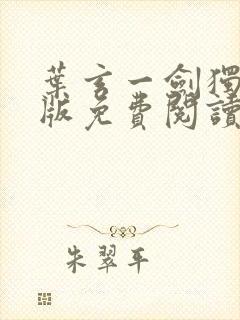 葉玄一劍獨
版免費閱讀
朱翠平